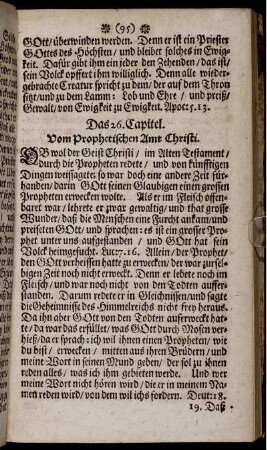 ❀ (95) ❀
GOtt/ überwinden werden. Denn er ist ein Priester
GOttes des Höchsten/ und bleibt solches in Ewig-
keit. Dafür gibt ihm ein jeder den Zehenden/ das ist/
sein Volck opffert ihm williglich. Denn alle wieder-
gebrachte Creatur spricht zu dem/ der auf dem Thron
sitzt/ und zu dem Lamm: Lob und Ehre/ und preiß/
Gewalt/ von Ewigkeit zu Ewigkeit. Apot: 5. 13.
Das 26. Capitel.
Vom Prophetischen Amt Christi.
OB wol der Geist Christi/ im Alten Testament/
durch die Propheten redete/ und von künfftigen
Dingen weissagete: so war doch eine andere Zeit für-
handen/ darin GOtt seinen Glaubigen einen grossen
Propheten erwecken wolte. Als er im Fleisch offen-
baret war/ lehrete er zwar gewaltig/ und that grosse
Wunder/ daß die Menschen eine Furcht ankam/ und
preiseten GOtt/ und sprachen: es ist ein grosser Pro-
phet unter uns aufgestanden/ und GOtt hat sein
Volk heimgesucht. Luc: 7. 16. Allein/ der Prophet/
den GOtt verheissen hatte zu erwecken/ der war zursel-
bigen Zeit noch nicht erweckt. Denn er lebete noch im
Fleisch/ und war noch nicht von den Todten auffer-
standen. Darum redete er in Gleichnissen/ und sagte
die Geheimnisse des Himmelreichs nicht frey heraus.
Da ihn aber GOtt von den Todten auferweckt hat-
te/ da war das erfüllet/ was GOtt durch Mosen ver-
hieß/ da er sprach: ich wil ihnen einen Propheten/ wie
du bist/ erwecken/ mitten aus ihren Brüdern/ und
meine Wort in seinen Mund geben/ der sol zu ihnen
reden alles/ was ich ihm gebieten werde. Und wer
meine Wort nicht hören wird/ die er in meinem Na-
men reden wird/ von dem wil ichs fordern. Deut: 18.
19. Daß